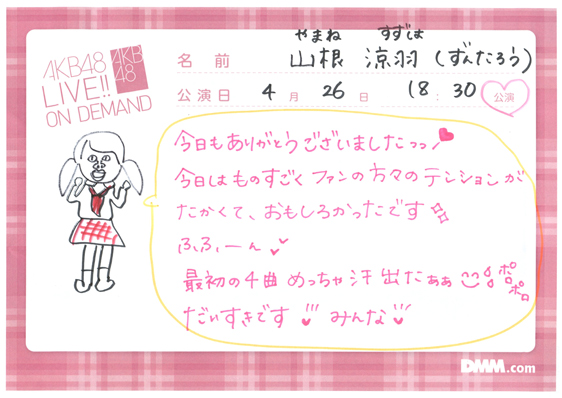 AKB48
LIVE!!
ON DEMAND
AKB
48
やまね すずは
名前 山根 涼羽 (ずんたろう)
公演日 4月 26日 18:30 公演
今日もありがとうございましたっっ!
今日はものすごくファンの方々のテンションが
たかくて、おもしろかったです
ふふーん
最初の4曲 めっちゃ汗出たぁぁ ポロ
ポロ
だいすきです みんな
DMM.com